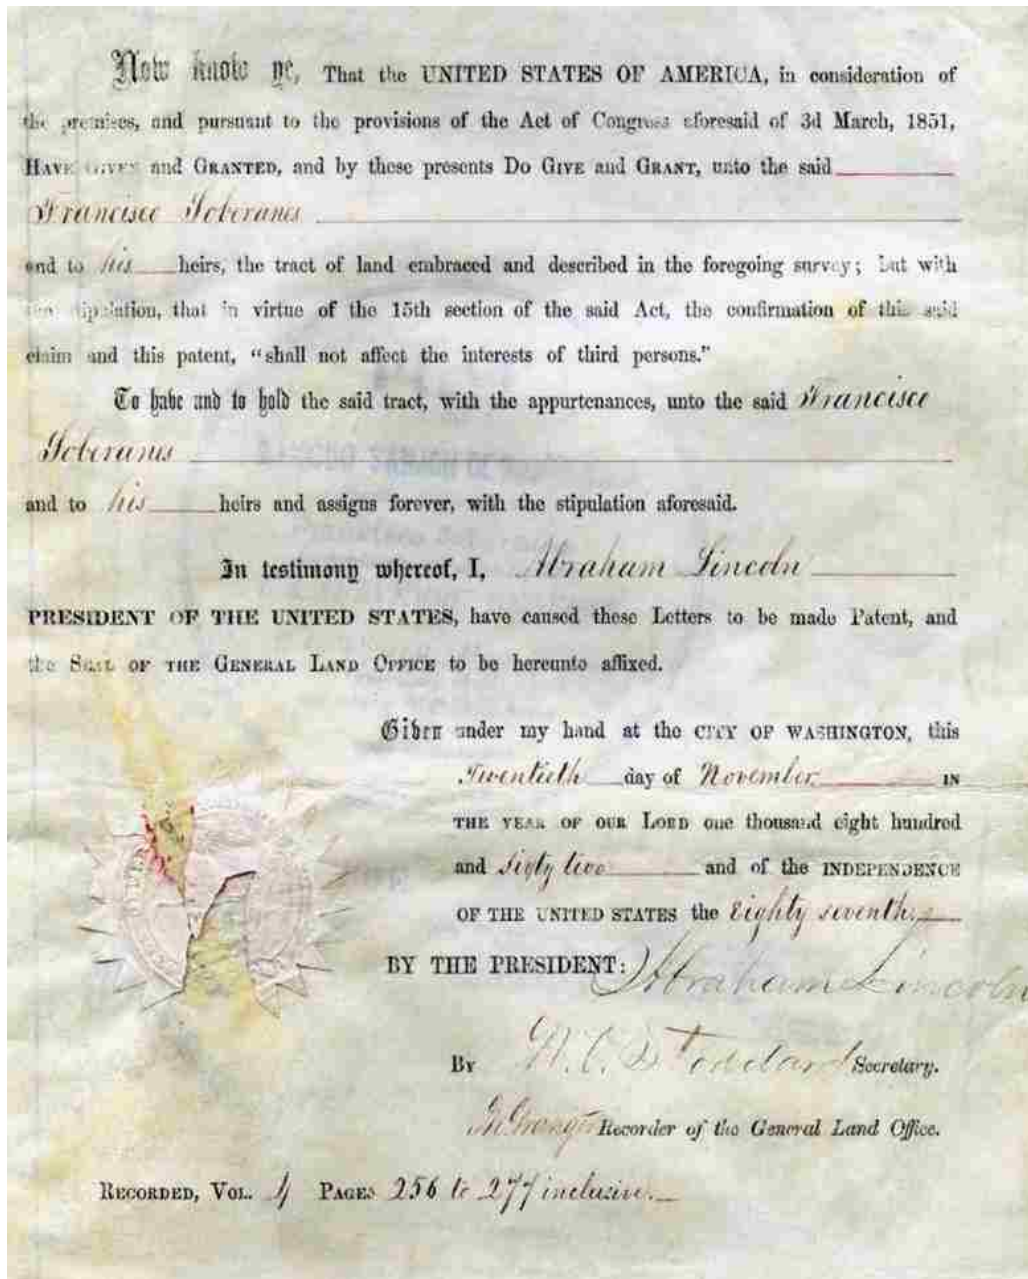 Now know ye, That the UNITED STATES OF AMERICA, in consideration of
the premises, and pursuant to the provisions of the Act of Congress aforesaid of 3d March, 1851,
HAVE GIVEN and GRANTED, and by these presents DO GIVE and GRANT, unto the said
Francisco Soberanes
and to his heirs, the tract of land embraced and described in the foregoing survey; but with
the stipulation, that in virtue of the 15th section of the said Act, the confirmation of this said
claim and this patent, "shall not affect the interests of third persons."
To have and to hold the said tract, with the appurtenances, unto the said Francisco
Soberanes
and to his heirs and assigns forever, with the stipulation aforesaid.
In testimony whereof, I, Abraham Lincoln
PRESIDENT OF THE UNITED STATES, have caused these Letters to be made Patent, and
the SEAL OF THE GENERAL LAND OFFICE to be hereunto affixed.
Given under my hand at the CITY OF WASHINGTON, this
Twentieth day of November IN
THE YEAR OF OUR LORD one thousand eight hundred
and sixty two and of the INDEPENDENCE
OF THE UNITED STATES the Eighty seventh.
BY THE PRESIDENT: Abraham Lincoln
BY W. O. Stoddard Secretary.
Granger Recorder of the General Land Office.
RECORDED, VOL. 4 PAGES 256 to 277 inclusive.